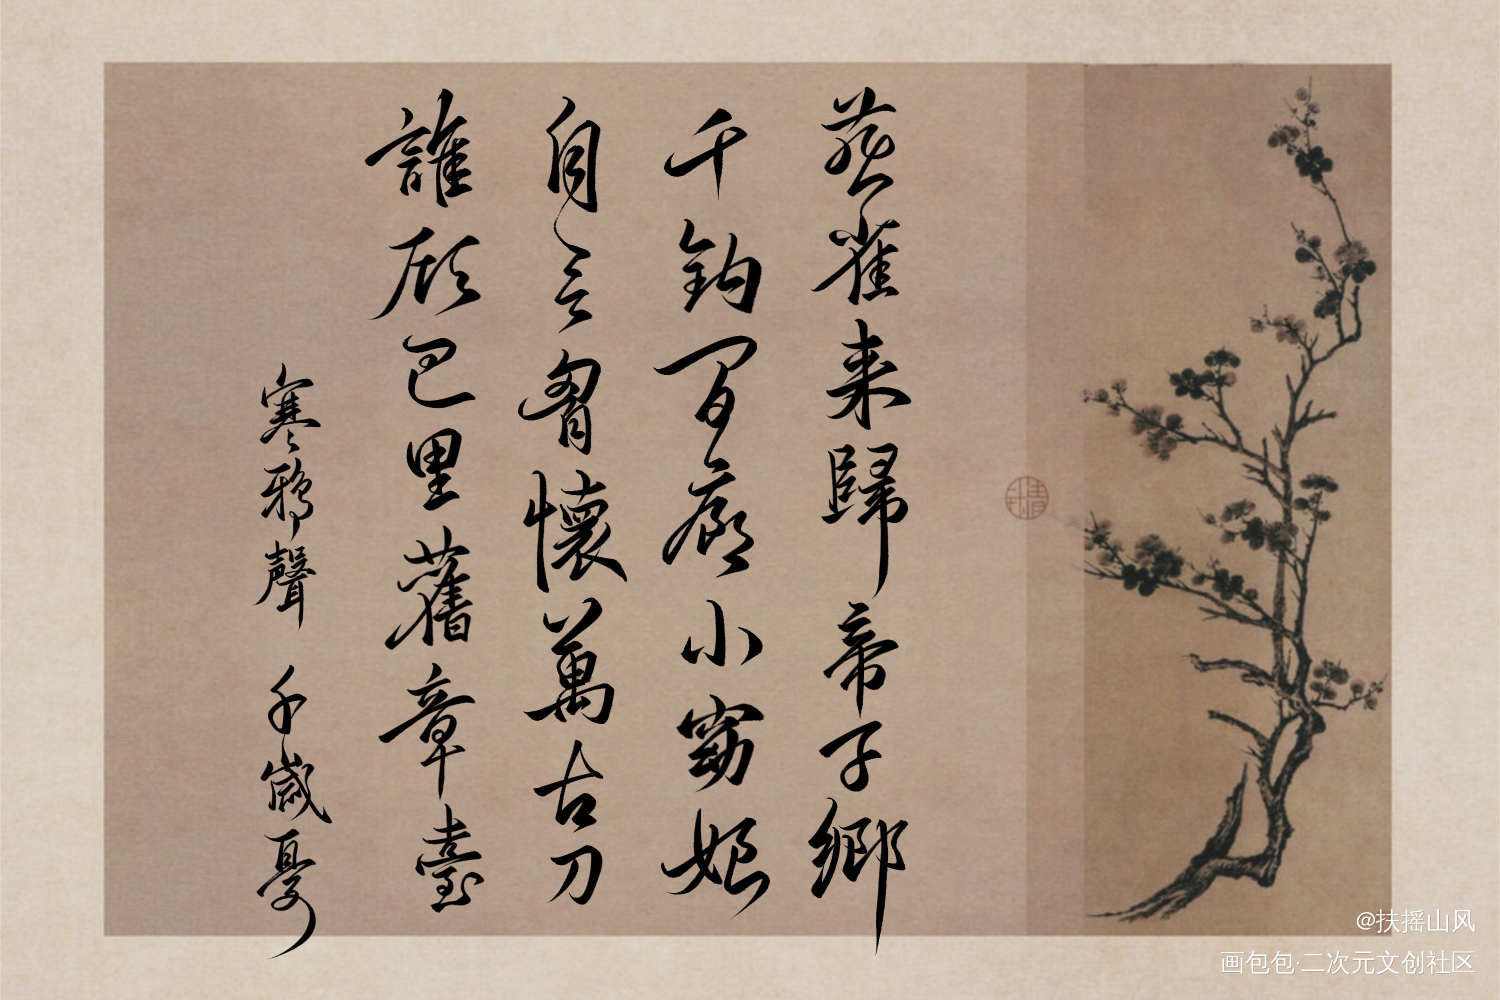 燕雀来歸帝子鄉
千鈞百廊小窈娘
自言胷懷萬古刀
誰顾巴里舊章臺
寒鴉聲 千歲憂
@扶摇山风
画包包·二次元文创社区